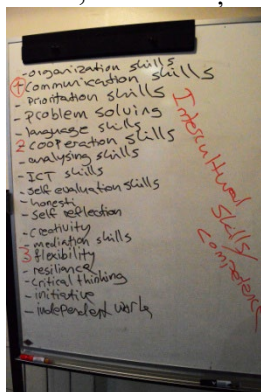 - organization skills
1 communication skills
- prioritation skills
- problem solving
- language skills
2 cooperation skills
- analysing skills
- ICT skills
- self evaluation skills
- honesti
- self reflection
- creativity
- mediation skills
3 flexibility
- resiliance
- critical thinking
- initiative
- independent work
Intercultural
Skills/
Competence